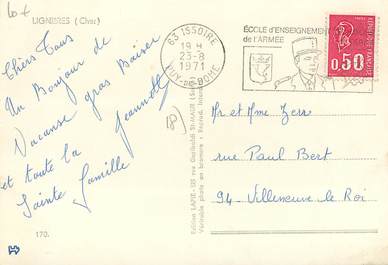 LIGNIERES (Cher)
Chers Tous
Un Bonjour de
Vacance gros Baiser
Jeannette
et toute la
Sainte Famille
170.
Edition LAPIE - 125 rue Garibaldi St-MAUR (Seine)
Véritable photo en bromure - Reprod. Interd.
63 ISSOIRE
19 H
23-8
1971
PUY-DE-DOME
ÉCOLE d'ENSEIGNEMENT
de l'ARMÉE
0,50
Mr et Mme Zerr
rue Paul Bert
94 - Villeneuve le Roi